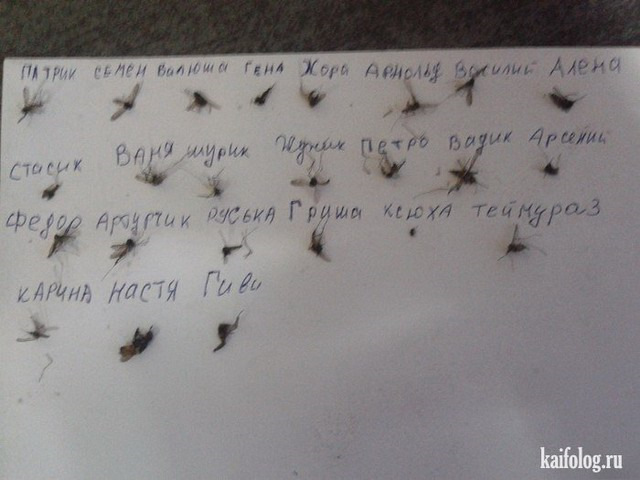 ПАТРИК СЕМЕН Валюша ГЕНА Жора Арнольд Василий Алена
Стасик ВАНЯ шурик Жужик Петро Вадик Арсений
Федор Артурчик РУСЬКА Гриша КСЮХА Теймураз
КАРИНА НАСТЯ Гиви
kaifolog.ru